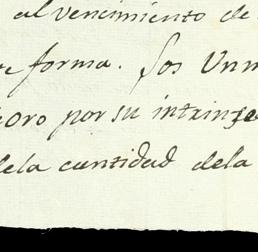 al vencimiento de
forma. sos Unm
oro por su intrinse
dela cantidad dela